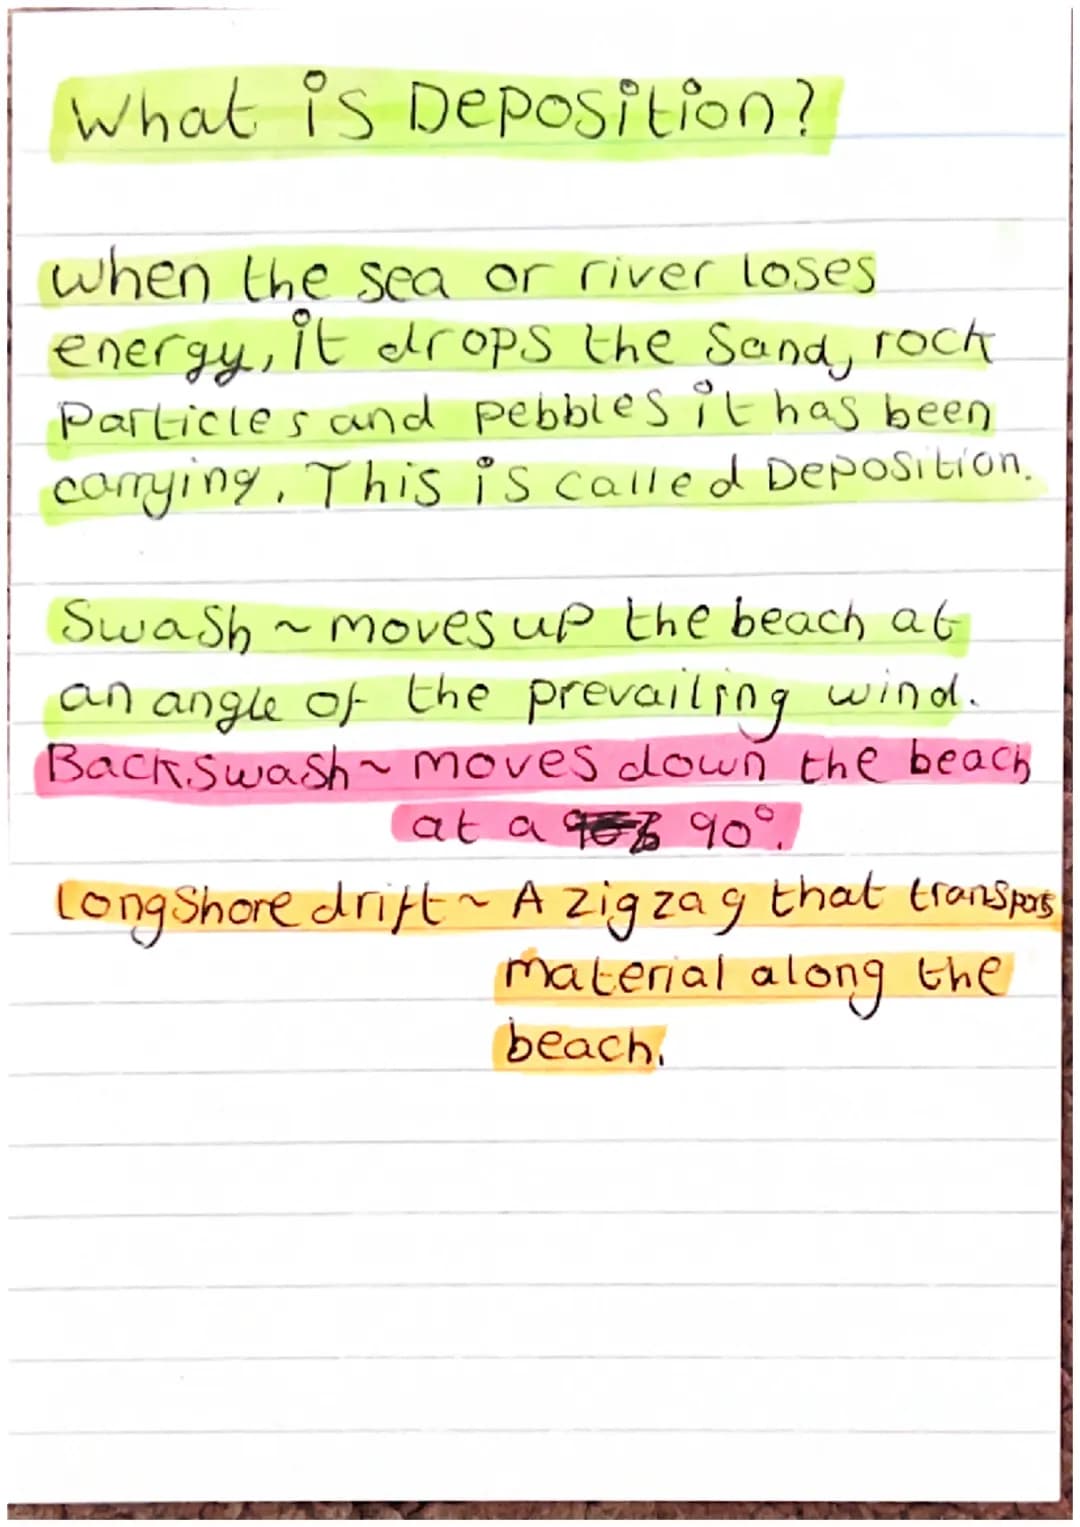 What is Deposition?
When the sea or river loses
energy, it drops the Sand, rock
Particles and pebbles it has been
carrying. This is called Deposition.
Swash ~ moves up the beach at
an angle of the prevailing wind.
Backswash ~ moves down the beach
at a 90°.
Longshore drift ~ A zigzag that
material along the
beach.